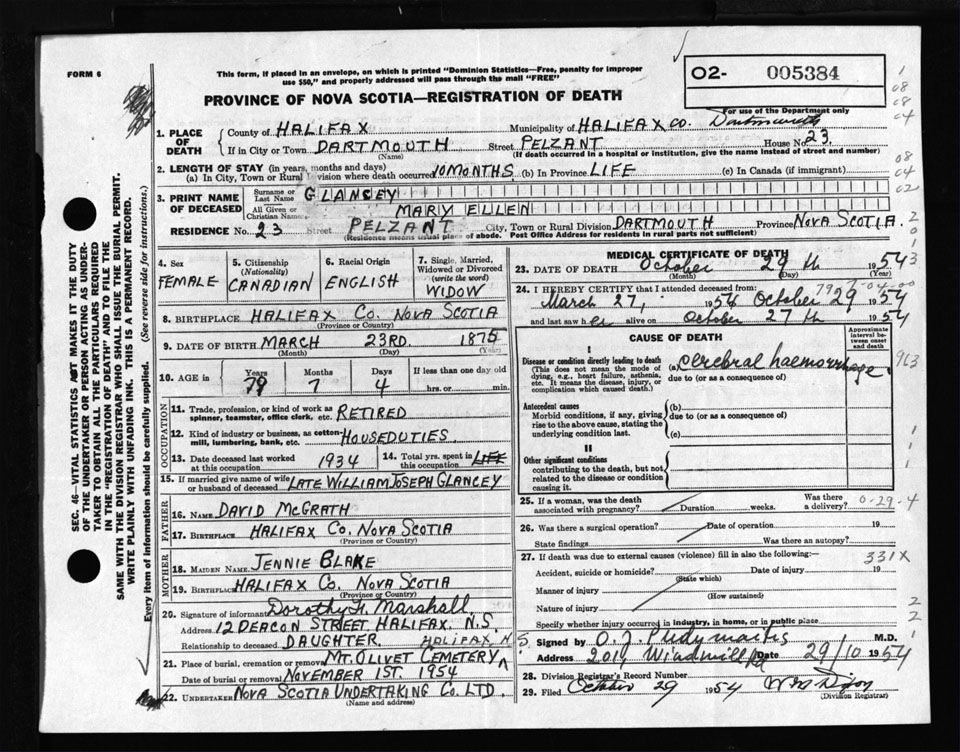 FORM 6
This form, if placed in an envelope, on which is printed "Dominion Statistics—Free, penalty for improper
use $50," and properly addressed will pass through the mail "FREE"
O2- 005384
PROVINCE OF NOVA SCOTIA—REGISTRATION OF DEATH
For use of the Department only
Dartmouth
1. PLACE OF DEATH
County of HALIFAX Municipality of HALIFAX CO.
If in City or Town DARTMOUTH Street PELZANT House No. 23.
(Name) (If death occurred in a hospital or institution, give the name instead of street and number)
2. LENGTH OF STAY (in years, months and days)
(a) In City, Town or Rural Division where death occurred 10 MONTHS (b) In Province LIFE (c) In Canada (if immigrant)
3. PRINT NAME OF DECEASED
Surname or Last Name GLANCEY
All Given or Christian Names MARY ELLEN
RESIDENCE No. 23 Street PELZANT City, Town or Rural Division DARTMOUTH Province NOVA SCOTIA
(Residence means usual place of abode. Post Office Address for residents in rural parts not sufficient)
4. Sex FEMALE
5. Citizenship (Nationality) CANADIAN
6. Racial Origin ENGLISH
7. Single, Married, Widowed or Divorced (write the word) WIDOW
8. BIRTHPLACE HALIFAX CO. NOVA SCOTIA
(Province or Country)
9. DATE OF BIRTH MARCH 23RD. 1875
(Month) (Day) (Year)
10. AGE in Years 79 Months 7 Days 4 If less than one day old hrs. or min.
OCCUPATION
11. Trade, profession, or kind of work as spinner, teamster, office clerk, etc. RETIRED
12. Kind of industry or business, as cotton-mill, lumbering, bank, etc. HOUSEDUTIES
13. Date deceased last worked at this occupation 1934
14. Total yrs. spent in this occupation LIFE
15. If married give name of wife or husband of deceased LATE WILLIAM JOSEPH GLANCEY
FATHER
16. NAME DAVID McGRATH
17. BIRTHPLACE HALIFAX CO. NOVA SCOTIA
(Province or Country)
MOTHER
18. MAIDEN NAME JENNIE BLAKE
19. BIRTHPLACE HALIFAX CO. NOVA SCOTIA
(Province or Country)
20. Signature of informant Dorothy F. Marshall
Address 12 DEACON STREET HALIFAX, N.S.
Relationship to deceased DAUGHTER HALIFAX N
21. Place of burial, cremation or removal MT. OLIVET CEMETERY
Date of burial or removal NOVEMBER 1ST. 1954
22. UNDERTAKER NOVA SCOTIA UNDERTAKING CO. LTD.
(Name and address)
MEDICAL CERTIFICATE OF DEATH
23. DATE OF DEATH October 29 th 1954
(Month) (Day) (Year)
24. I HEREBY CERTIFY that I attended deceased from:
March 27, 1954 October 29 1954
and last saw her alive on October 27 th 1954
CAUSE OF DEATH
Approximate interval between onset and death
I
Disease or condition directly leading to death
(This does not mean the mode of dying, e.g., heart failure, asthenia, etc. It means the disease, injury, or complication which caused death.)
(a) Cerebral haemorrhage
due to (or as a consequence of)
Antecedent causes
Morbid conditions, if any, giving rise to the above cause, stating the underlying condition last.
(b)
due to (or as a consequence of)
(c)
II
Other significant conditions
contributing to the death, but not related to the disease or condition causing it.
25. If a woman, was the death associated with pregnancy? Duration weeks. Was there a delivery?
0-29-4
26. Was there a surgical operation? Date of operation 19
State findings Was there an autopsy?
27. If death was due to external causes (violence) fill in also the following:
331X
Accident, suicide or homicide? Date of injury 19
(State which)
Manner of injury
(How sustained)
Nature of injury
Specify whether injury occurred in industry, in home, or in public place
Signed by M.D.
Address Windmill Rd Date 29/10 1954
28. Division Registrar's Record Number
29. Filed October 29 1954
(Division Registrar)
SEC. 46—VITAL STATISTICS ACT MAKES IT THE DUTY
OF THE UNDERTAKER OR PERSON ACTING AS UNDER-
TAKER TO OBTAIN ALL THE PARTICULARS REQUIRED
IN THE "REGISTRATION OF DEATH" AND TO FILE THE
SAME WITH THE DIVISION REGISTRAR WHO SHALL ISSUE THE BURIAL PERMIT.
WRITE PLAINLY WITH UNFADING INK. THIS IS A PERMANENT RECORD.
Every item of information should be carefully supplied. (See reverse side for instructions.)